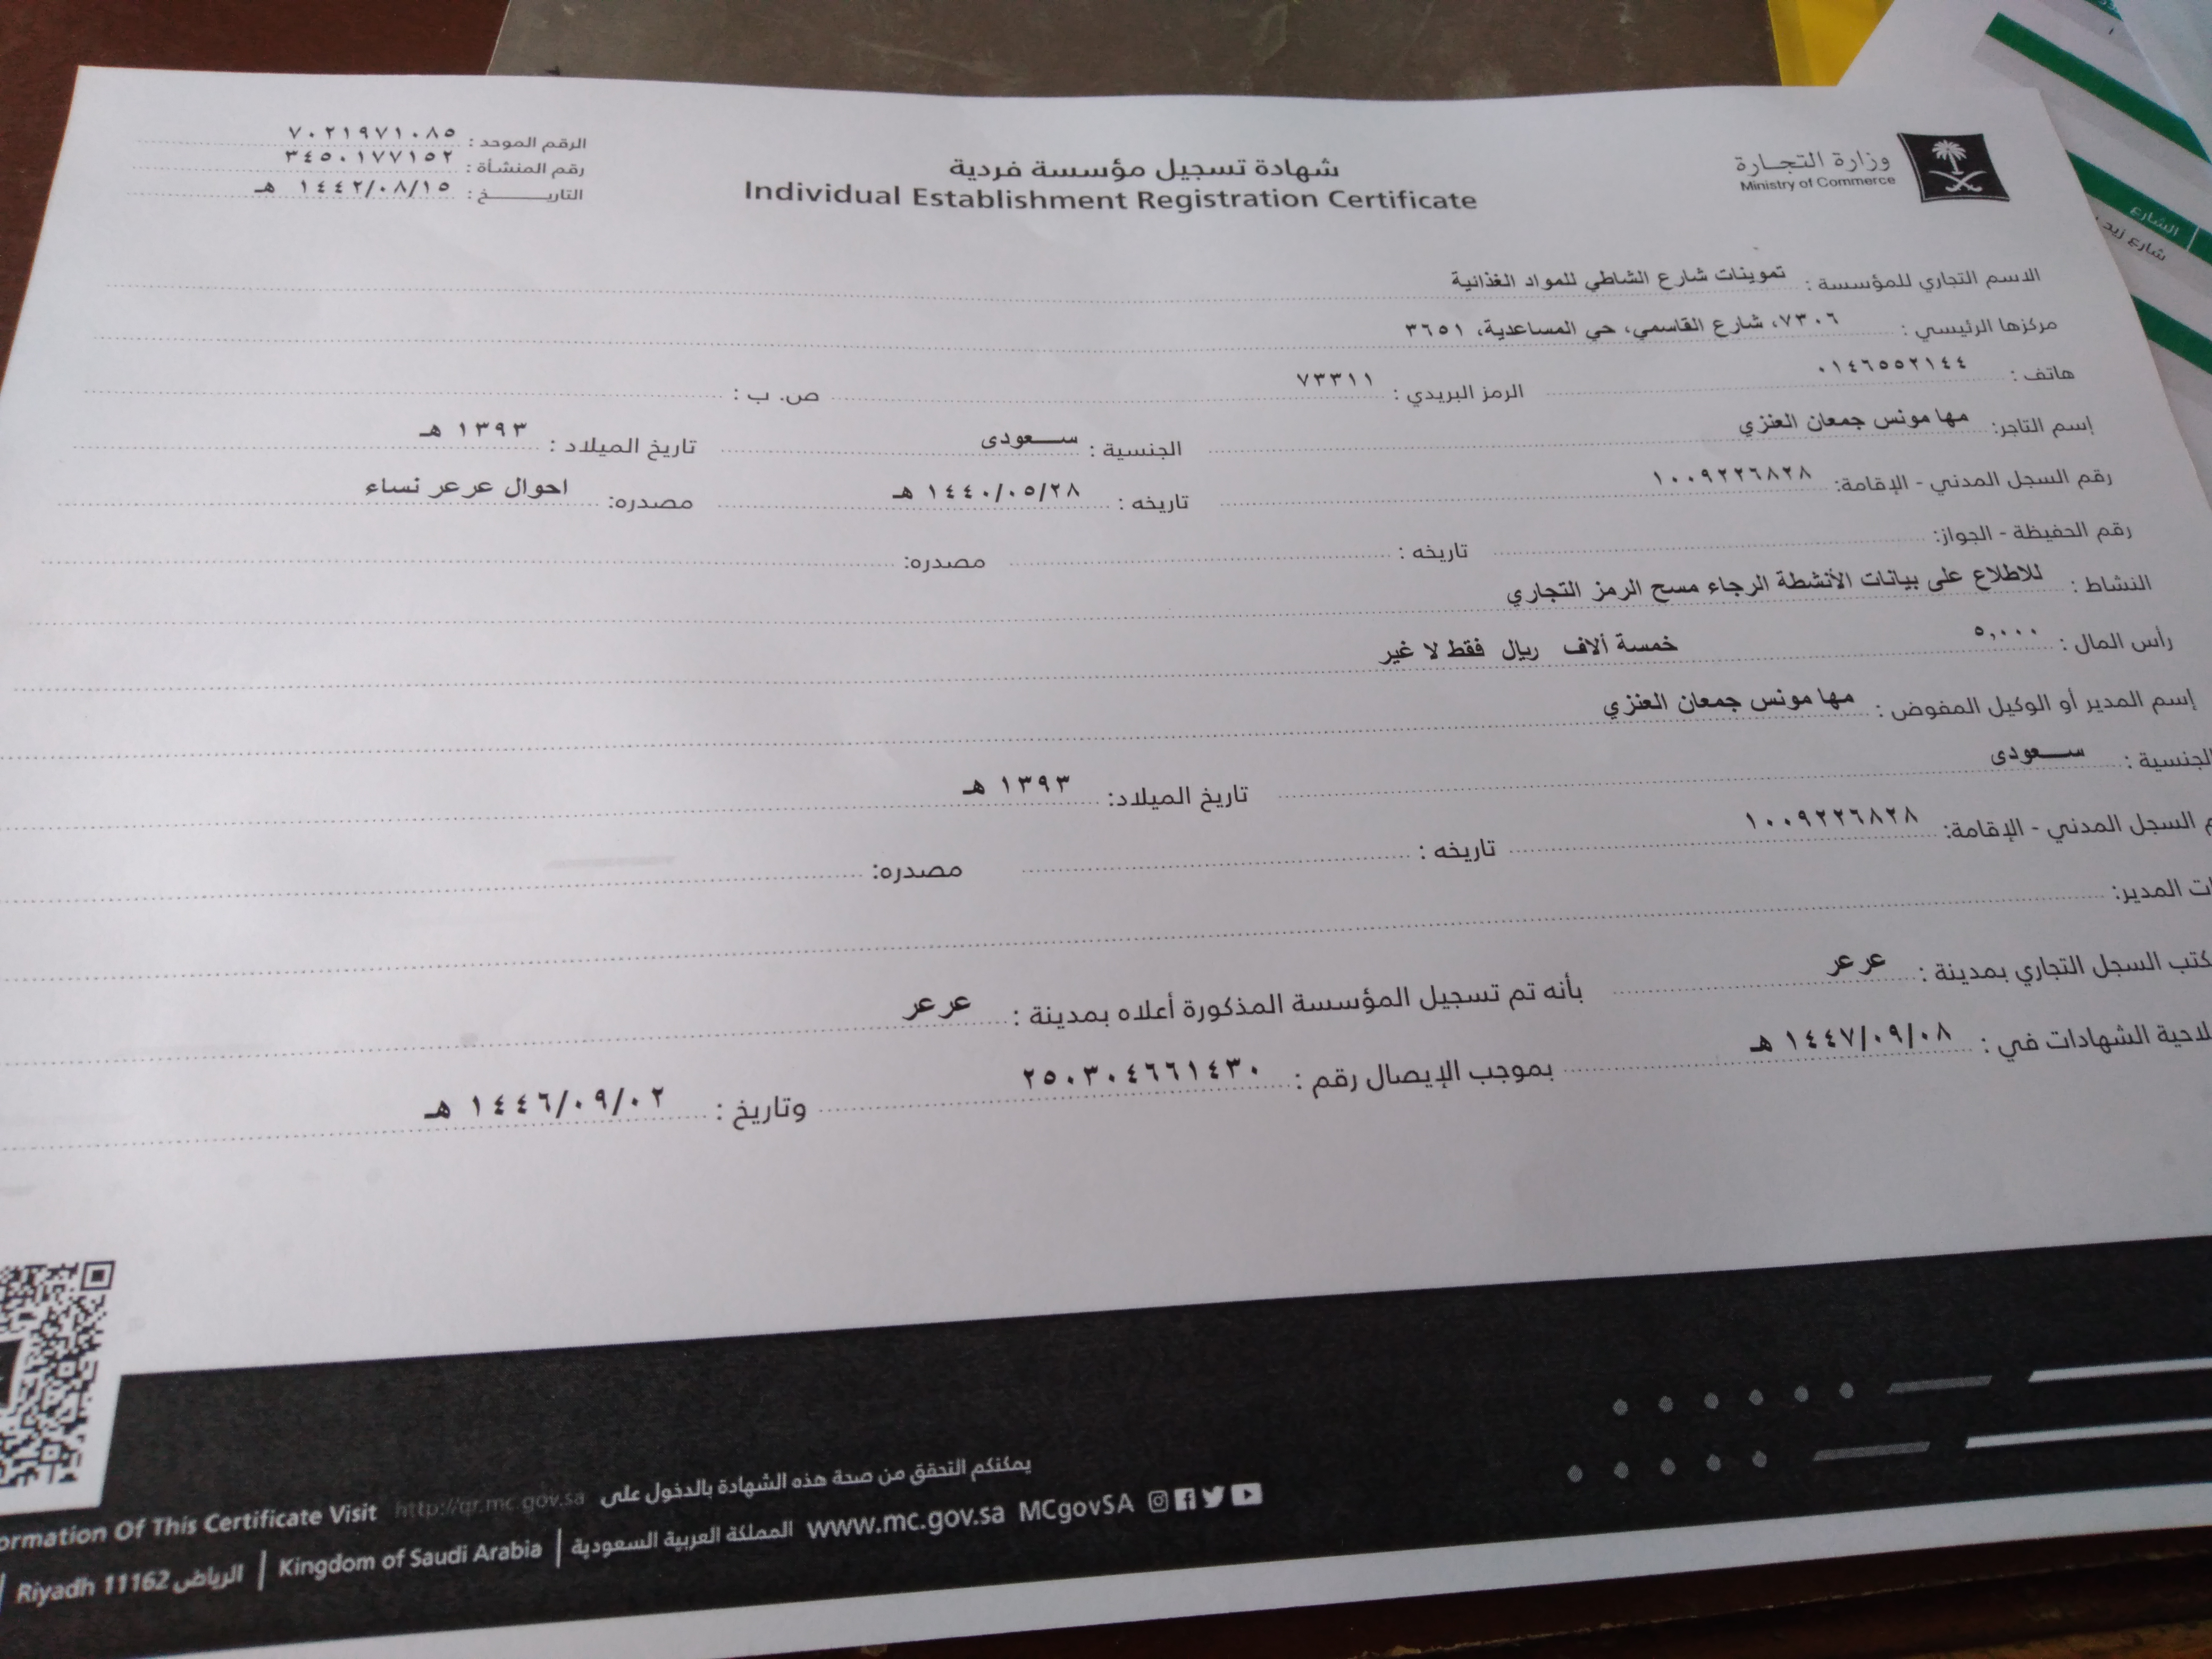 وزارة التجارة
Ministry of Commerce
شهادة تسجيل مؤسسة فردية
Individual Establishment Registration Certificate
الرقم الموحد : ٧٠٢١٩٧١٠٨٥
رقم المنشأة : ٣٤٥٠١٧٧١٥٢
التاريـــــــخ : ١٤٤٢/٠٨/١٥ هـ
الاسم التجاري للمؤسسة : تموينات شارع الشاطي للمواد الغذائية
مركزها الرئيسي : ٧٣٠٦، شارع القاسمي، حي المساعدية، ٣٦٥١
هاتف : ٠١٤٦٥٥٢١٤٤ الرمز البريدي : ٧٣٣١١ ص. ب :
إسم التاجر: مها مونس جمعان العنزي الجنسية : ســـعودى تاريخ الميلاد : ١٣٩٣ هـ
رقم السجل المدني - الإقامة: ١٠٠٩٢٢٦٨٢٨ تاريخه : ١٤٤٠/٠٥/٢٨ هـ مصدره: احوال عرعر نساء
رقم الحفيظة - الجواز: تاريخه : مصدره:
النشاط : للاطلاع على بيانات الأنشطة الرجاء مسح الرمز التجاري
رأس المال : ٥,٠٠٠ خمسة ألاف ريال فقط لا غير
إسم المدير أو الوكيل المفوض : مها مونس جمعان العنزي
الجنسية : ســـعودى تاريخ الميلاد: ١٣٩٣ هـ
م السجل المدني - الإقامة: ١٠٠٩٢٢٦٨٢٨ تاريخه : مصدره:
ات المدير:
كتب السجل التجاري بمدينة : عرعر بأنه تم تسجيل المؤسسة المذكورة أعلاه بمدينة : عرعر
لاحية الشهادات في : ١٤٤٧/٠٩/٠٨ هـ بموجب الإيصال رقم : ٢٥٠٣٠٤٦٦١٤٣٠ وتاريخ : ١٤٤٦/٠٩/٠٢ هـ
يمكنكم التحقق من صحة هذه الشهادة بالدخول على http://qr.mc.gov.sa ormation Of This Certificate Visit
Riyadh 11162 الرياض | Kingdom of Saudi Arabia | المملكة العربية السعودية www.mc.gov.sa MCgovSA
الشارع
شارع زيد